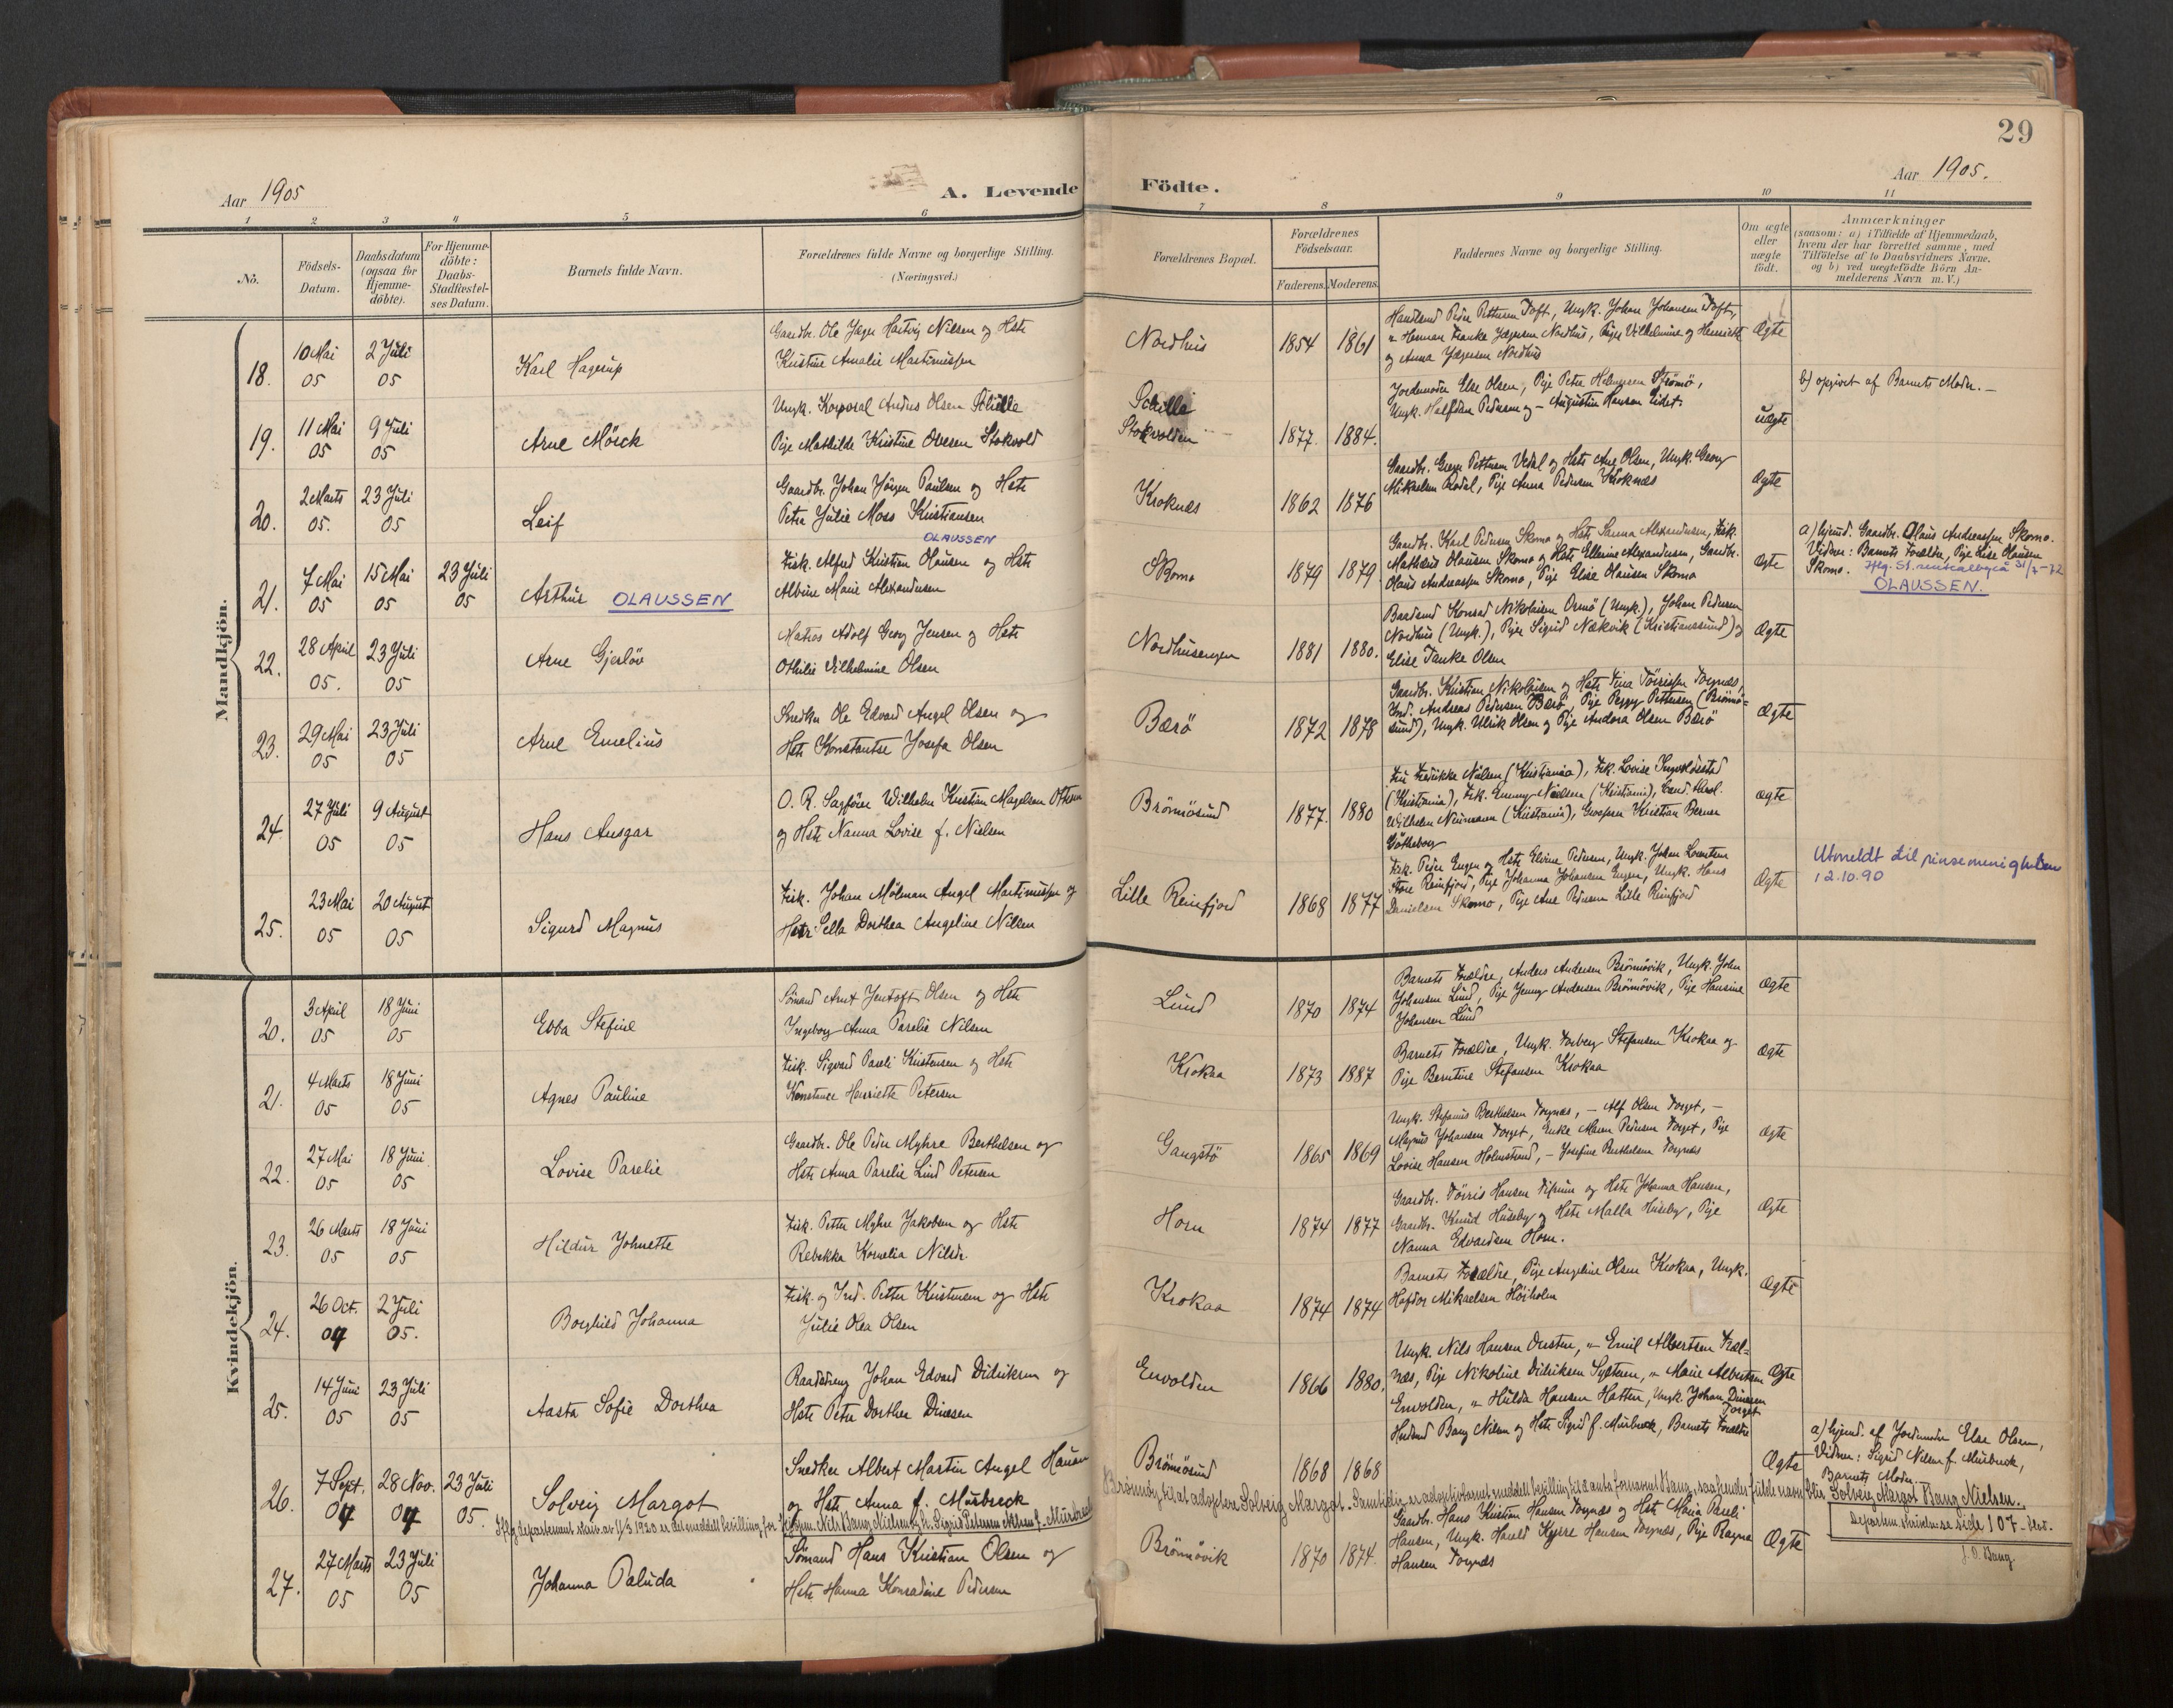 29
Aar 1905
A. Levende Födte.
Aar 1905.
1 2 3 4 5 6 7 8 9 10 11
No.
Födsels-Datum.
Daabsdatum (ogsaa for Hjemme-döbte).
For Hjemme-döbte: Daabs-Stadfæstelses Datum.
Barnets fulde Navn.
Forældrenes fulde Navne og borgerlige Stilling. (Næringsvei.)
Forældrenes Bopæl.
Forældrenes Födselsaar.
Faderens. Moderens.
Faddernes Navne og borgerlige Stilling.
Om ægte eller uægte födt.
Anmærkninger
(saasom: a) i Tilfælde af Hjemmedaab, hvem der har forrettet samme, med Tilföielse af to Daabsvidners Navne, og b) ved uægtefödte Börn Anmelderens Navn m.V.)
Mandkjön.
18. 10 Mai 05 2 Juli 05 Karl Hagerup
Gaardbr. Ole Jæger Hartvig Nilsen og Hstr
Kristine Amalie Martinussen
Nordhus 1854 1861
Petter Pettersen Toft, Ungk. Johan Johansen Toft,
" Herman Franke Jægersen Nordhus, Piger Vilhelmine og Henriette
og Anna Jægersen Nordhus
Ægte
19. 11 Mai 05 9 Juli 05 Arne Mörck
Ungk. Korporal Andus Olsen Schille
Pige Mathilde Kristine Ovesen Stokvold
Schille
Stokvolden 1877. 1884.
Jordemoder Else Olsen, Pige Petra Helmersen Strömö,
Ungk. Halfdan Pedersen og – Augustin Hansen Eidet.
uægte
b) opgivet af Barnets Moder. –
20. 2 Marts 05. 23 Juli 05 Leif
Gaardbr. Johan Jörgen Paulsen og Hstr
Petra Julie Moss Kristiansen
Kroknæs 1862 1876
Gaardbr. Greger Pettersen Vedal og Hstr Ane Olsen, Ungk. Georg
Mikaelsen Rodal, Pige Anna Pedersen Kroknæs
Ægte
21. 7 Mai 05 15 Mai 05 23 Juli 05 Arthur OLAUSSEN
OLAUSSEN
Fisk. Alfred Kristian Olausen og Hstr
Albine Marie Alexandersen
Skomo 1879 1879
Gaardbr. Karl Pedersen Skomo og Hstr Sanna Alexandersen, Fisk.
Mathæus Olausen Skomo og Hstr Ellerine Alexandersen, Gaardbr.
Olaus Andreassen Skomo, Pige Elise Olausen Skomo
Ægte
a) hjemd. Gaardbr. Olaus Andreassen Skomo.
Vidner: Barnets Forældre, Pige Lise Olausen
Skomo. Iflg. St. sentralbyrå 31/7-72
OLAUSSEN.
22. 28 April 05. 23 Juli 05 Arne Gjerlöv
Matros Adolf Georg Jensen og Hstr
Othilie Vilhelmine Olsen
Nordhusengen 1881 1880.
Baadsmd Konrad Nikolaisen Ormö (Ungk.), Johan Pedersen
Nordhus (Ungk.), Piger Sigrid Nækvik (Kristianssund) og
Elise Tanke Olsen
Ægte
23. 29 Mai 05 23 Juli 05 Arne Emelius
Snedker Ole Edvard Angel Olsen og
Hstr Konstantse Josefa Olsen
Bærö 1872 1878
Gaardbr. Kristian Nikolaisen og Hstr Tina Törrissen Torgnæs,
Ind. Andreas Pedersen Bærö, Pige Peggy Pettersen (Brönnö-
sund), Ungk. Ulrik Olsen og Pige Andora Olsen Bærö
Ægte
24. 27 Juli 05 9 August 05 Hans Ansgar
O. R. Sagförer Wilhelm Kristian Magelsen Ottesen
og Hstr Nanna Lovise f. Nielsen
Brönnösund 1877. 1880
Fru Fredrikke Nielsen (Kristiania), Frk. Lovise Ingvoldstad
(Kristiania), Frk. Emmy Nielsen (Kristiania), Cand. theol.
Wilhelm Neumann (Kristiania), Grosserer Kristian Berner
Götheborg
ægte
25. 23 Mai 05 20 August 05 Sigurd Magnus
Fisk. Johan Mölman Angel Martinussen og
Hstr Ella Dorthea Angeline Nilsen
Lille Reinfjord 1868 1877
Fisk. Peder Engen og Hstr Elvine Pedersen, Ungk. Johan Lorentsen
Store Reinfjord, Pige Johanna Johansen Engen, Ungk. Hans
Danielsen Skomo, Pige Ane Pedersen Lille Reinfjord
Ægte
Utmeldt til pinsemenigheten
12.10.90
Kvindekjön.
20. 3 April 05 18 Juni 05 Ebba Stefine
Sömand Arnt Jentoft Olsen og Hstr
Ingeborg Anna Parelie Nilsen
Lund 1870 1874
Barnets Forældre, Anders Andersen Brönnövik, Ungk. John
Johansen Lund, Pige Jenny Andersen Brönnövik, Pige Hansine
Johansen Lund
Ægte
21. 4 Marts 05 18 Juni 05 Agnes Pauline
Fisk. Sigvard Pareli Kristensen og Hstr
Konstance Henriette Petersen
Krokaa 1873 1887
Barnets Forældre, Ungk. Torberg Stefansen Krokaa og
Pige Berntine Stefansen Krokaa
Ægte
22. 27 Mai 05 18 Juni 05 Lovise Parelie
Gaardbr. Ole Peder Myhre Berthelsen og
Hstr Anna Parelie Lind Petersen
Gangstö 1865 1869
Ungk. Stefanus Berthelsen Torgnæs, – Alf Olsen Torget, –
Magnus Johansen Torget, Enke Maren Pedersen Torget, Pige
Lovise Hansen Holmstrand, – Josefine Berthelsen Torgnæs
Ægte
23. 26 Marts 05 18 Juni 05 Hildur Johnette
Fisk. Petter Myhre Jakobsen og Hstr
Rebekka Kornelia Nilsdr.
Horn 1874 1877
Gaardbr. Törris Hansen Tilrum og Hstr Johanna Hansen,
Gaardbr. Knud Huseby og Hstr Malla Huseby, Pige
Nanna Edvardsen Horn.
Ægte
24. 26 Oct. 04 2 Juli 05. Borghild Johanna
Fisk. og Ind. Petter Kristensen og Hstr
Julie Olea Olsen
Krokaa 1874 1874
Barnets Forældre, Pige Angeline Olsen Krokaa, Ungk.
Hafdor Mikaelsen Höiholm
Ægte
25. 14 Juni 05 23 Juli 05 Aasta Sofie Dorthea
Johan Edvard Didriksen og
Hstr Petra Dorthea Dinesen
Envolden 1866 1880.
Ungk. Nils Hansen, " Emil Albertsen Træl-
næs, Pige Nikoline Didriksen, " Marie Albertsen
Envolden, " Hulda Hansen Hatten, Ungk. Johan Dinesen
Torget
Ægte
26. 7 Sept. 04 28 Nov. 04 23 Juli 05. Solveig Margot
Snedker Albert Martin Angel Hansen
og Hstr Anna f. Mürbreck
Brönnösund 1868 1868
Bang Nilsen og Hstr Sigrid f. Mürbreck, Barnets Forældre
Ægte
a) hjemd. af Jordmoder Else Olsen,
Vidner: Sigrid Nilsen f. Mürbreck,
Barnets Moder.
Iflg departement skriv. av 11/3 1920 er det meddelt bevilling for Nils Bang Nielsen og h. Sigrid Petersen Nilsen f. Mürbreck Brønnøy til at adoptere Solveig Margot. Samtidig er adoptivbarnet meddelt bevilling til at anta fornavnet Bang, saa hendes fulde navn blir Solveig Margot Bang Nielsen.
Departem. skrivelse side 107
J. O. Bang.
27. 27 Marts 05 23 Juli 05 Johanna Paluda
Sömand Hans Kristian Olsen og
Hstr Hanna Konradine Pedersen
Brönnövik 1870 1874.
Gaardbr. Hans Kristian Hansen Torgnæs og Hstr Maria Pareli
Hansen, Ungk. Harald Kyrre Hansen Torgnæs, Pige Ragna
Hansen Torgnæs
Ægte